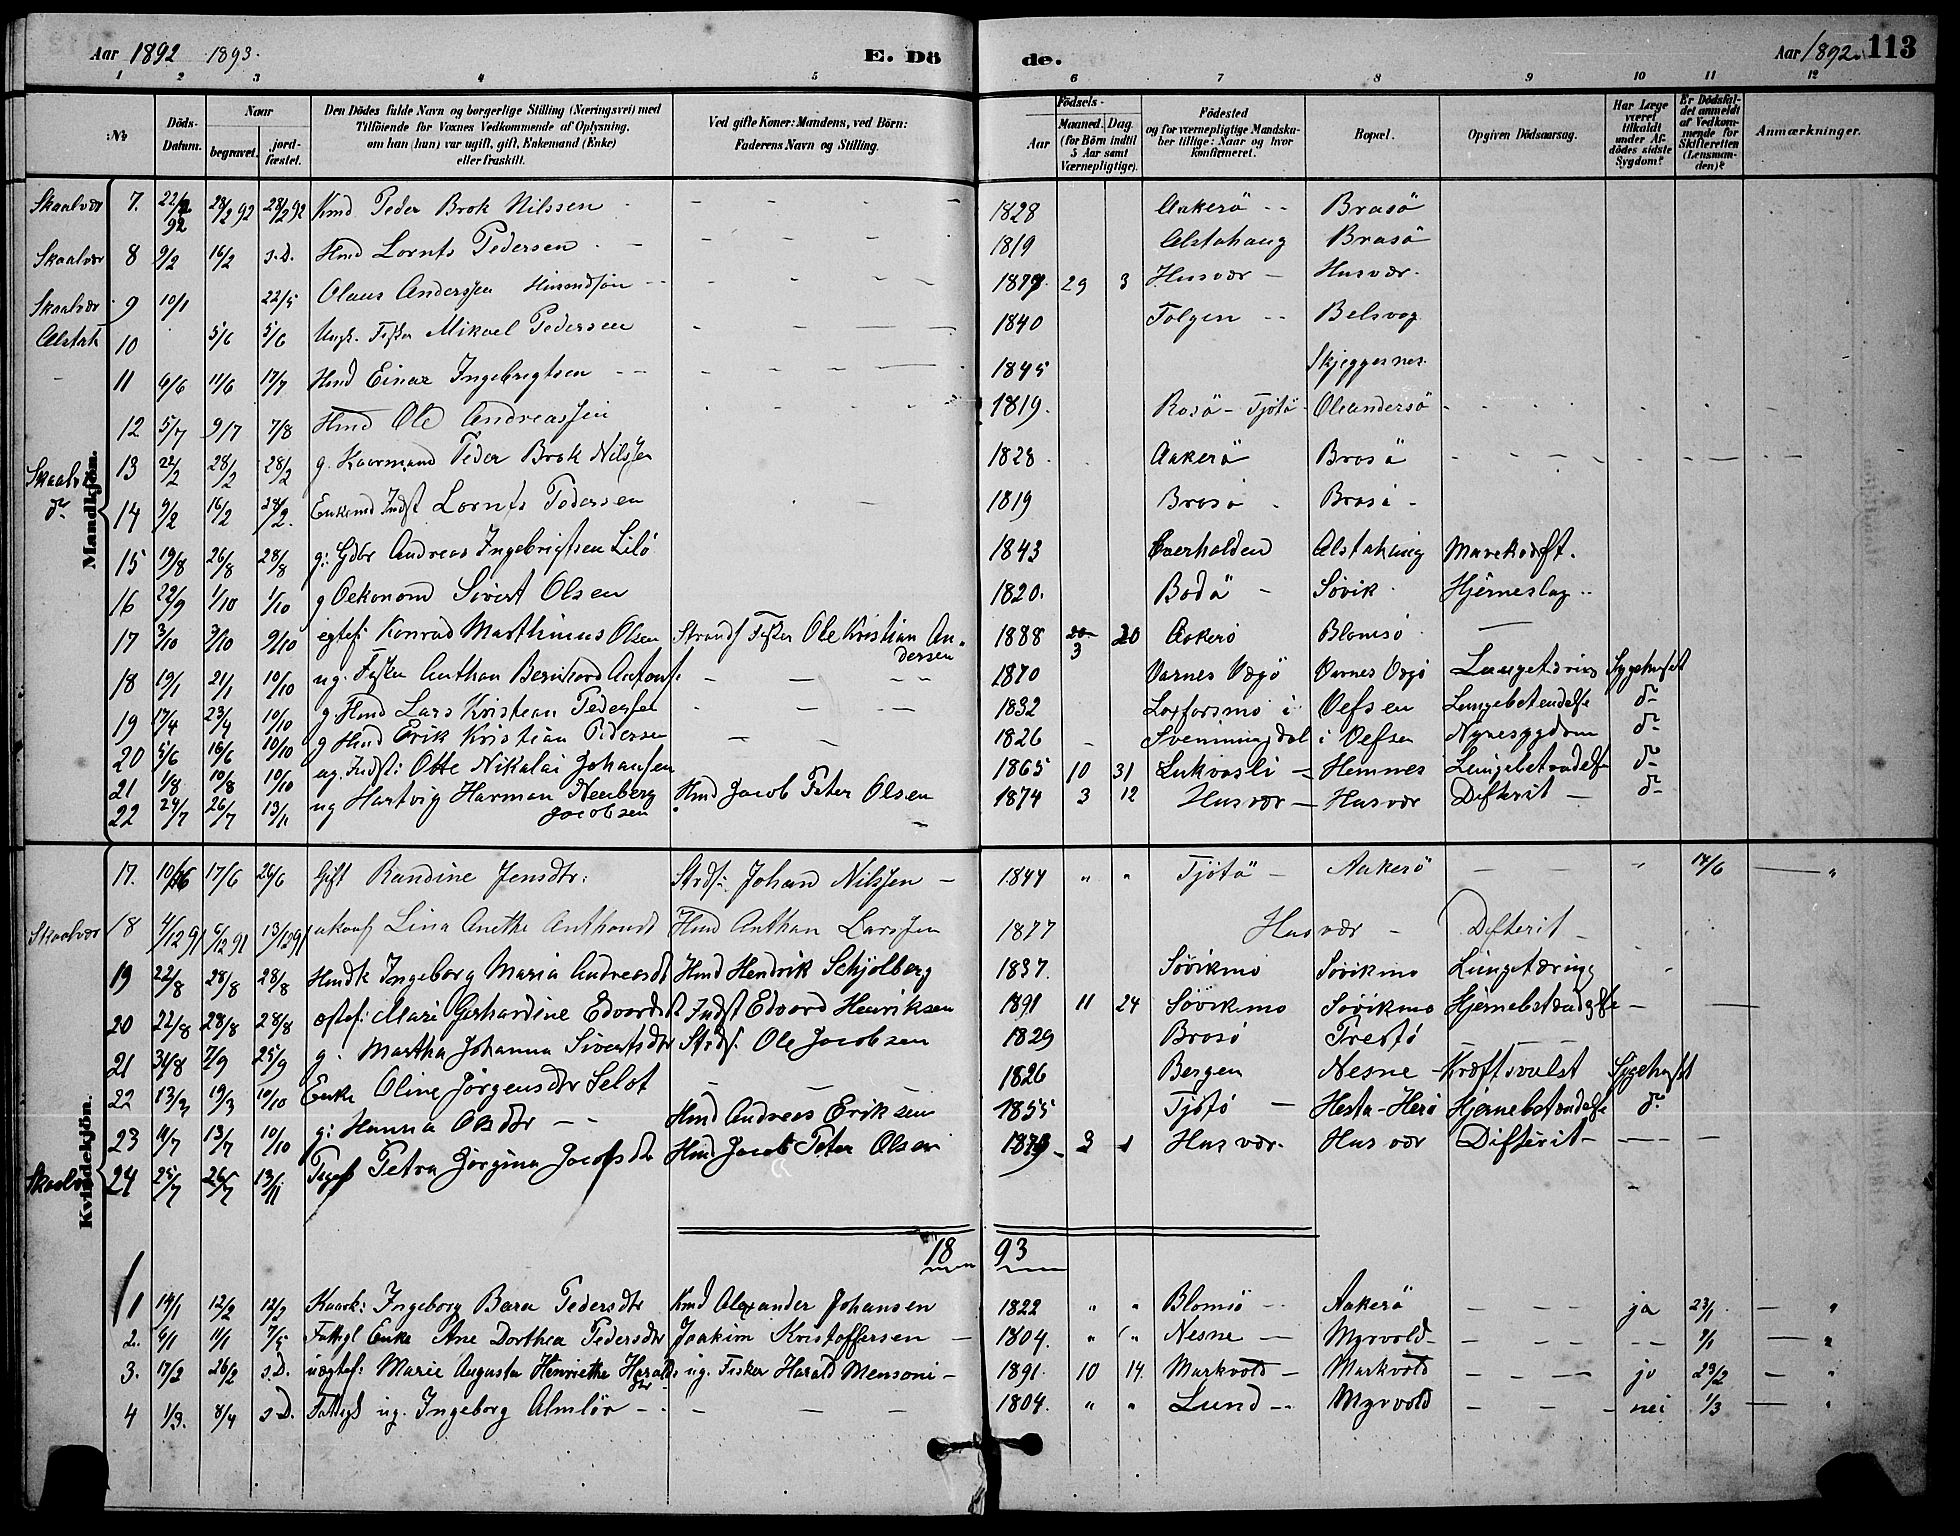 Aar 1892 1893. E. Döde. Aar 1892. 113
1 2 3 4 5 6 7 8 9 10 11 12
No Döds-Datum. Naar begravet. jordfæstet. Den Dödes fulde Navn og borgerlige Stilling (Næringsvei) med Tilföiende for Voxnes Vedkommende af Oplysning, om han (hun) var ugift, gift, Enkemand (Enke) eller fraskilt. Ved gifte Koner: Mandens, ved Börn: Faderens Navn og Stilling. Födsels- Aar Maaned. Dag. (for Börn indtil 5 Aar samt Værnepligtige). Födested og for værnepligtige Mandskaber tillige: Naar og hvor konfirmeret. Bopæl. Opgiven Dödsaarsag. Har Læge været tilkaldt under Afdödes sidste Sygdom? Er Dödsfaldet anmeldt af Vedkommende for Skifteretten (Lensmanden)? Anmærkninger.
Mandkjön.
Skaalvær 7. 22/2 92 28/2 92 28/2 92 Kmd Peder Brok Nilssen 1828 Aakerö Brasö
Skaalvær 8 9/2 16/2 s.D. Hmd Lornts Pedersen 1819 Alstahaug Brasö
Skaalvær 9 10/1 22/5 Olaus Anderssen 29 3 Husvær Husvær
Alstah 10 5/6 5/6 Ungk. Fisker Mikael Pedersen 1840 Belsvog
11 6/6 11/6 17/7 Hmd Einar Ingebrigtsen 1845 Skjeggesnes
12 5/7 9/7 7/8 Hmd Ole Andreassen 1819. Rosö - Tjötö Oleandersö
Skaalvær 13 22/2 28/2 28/2 g. Kaarmand Peder Brok Nilssen 1828 Aakerö Brasö
do 14 9/2 16/2 28/2. Enkemd Indst Lornts Pedersen 1819 Brasö Brasö
15 19/8 26/8 28/8 g: Gdbr Andreas Ingebrigtsen Lilö 1843 Overhalden Alstahaug Mavekræft.
16 22/9 1/10 1/10 g Oekonom Sivert Olsen 1820. Bodö Søvik Hjerneslag
17 3/10 9/10 9/10 egtef: Konrad Marthinius Olsen Strands. Fisker Ole Kristian Andersen 1888 3 20 Aakerö Blomsö
18 19/1 21/1 10/10 ug. Fisker Anthon Bernhard Antons. 1870 Varnes Vegö Varnes Vegö Lungetæring Sygehuset
19 17/4 23/4 10/10 g Hmd Lars Kristian Pedersen 1832 Laxforsmo i Vefsen Lungebetendelse do
20 5/6 16/6 10/10 g Hmd Erik Kristian Pedersen 1826 Svenningdal i Vefsen Nyresygdom do
21 1/8 10/8 10/10 ug. Indst: Otte Nikolai Johansen 1865 10 31 Lukvasli Hemnes Lungebetændelse do
22 24/7 26/7 13/11 ug Hartvig Harman Neuberg Jacobsen Hmd Jacob Peter Olsen 1874 3 12 Husvær Husvær Difterit do
Kvindekjön.
17. 10/6 17/6 26/6 Gift Randine Jensdtr: Strds: Johan Nilssen 1844 " " Tjötö Aakerö " 14/6 "
Skaalvær 18 4/12 91 6/12 91 13/12 91 Lina Anethe Anthonsd Hmd Anthon Larssen 1877 Husvær Difterit
19 22/8 28/8 28/8 Hmdk Ingeborg Maria Andreasdt Hmd Hendrik Schjølberg 1837. Søvikmo Søvikmo Lungetæring
20 22/8 28/8 28/8 Mari Gerhardine Edvardsdt Indst Edvard Henriksen 1891 11 24 Søvikmo Søvikmo Hjernebetændelse
21 31/8 7/9 25/9 g. Martha Johanna Sivertsdtr Strds: Ole Jacobsen 1829 Brasö
22 13/3 19/3 10/10 Enke Oline Jörgensdtr Selot 1826 Bergen Nesne Kræftsvulst Sygehuset
23 11/7 13/7 10/10 g: Hanna Olsdtr Hmd Andreas Eriksen 1855 Tjötö Hesta-Herö Hjernebetændelse do
Skaalvær 24 25/7 26/7 13/11 Petra Jörgina Jacobsdtr Hmd Jacob Peter Olsen 1879 3 1 Husvær. Husvær Difterit
1893
1 14/1 12/2 12/2 Kaark: Ingeborg Bara Pedersdtr Kmd Alexander Johansen 1822 " " Blomsö Aakerö ja 23/1 "
2. 6/1 11/1 7/5 Fattigl Enke Ane Dorthea Pedersdtr Joakim Kristoffersen 1804. " " Nesne Myrvold 9/1 "
3. 17/2 26/2 s.D. uægtef: Marie Augusta Henriethe Haraldsdtr ug. Fisker Harald Mensoni 1891. 10 14. Markvold Markvold ja 23/2 "
4 1/3. 8/4 s.D. Fattigl ug. Ingeborg Almlöv 1804. " " Lund Myrvold nei 1/3 "